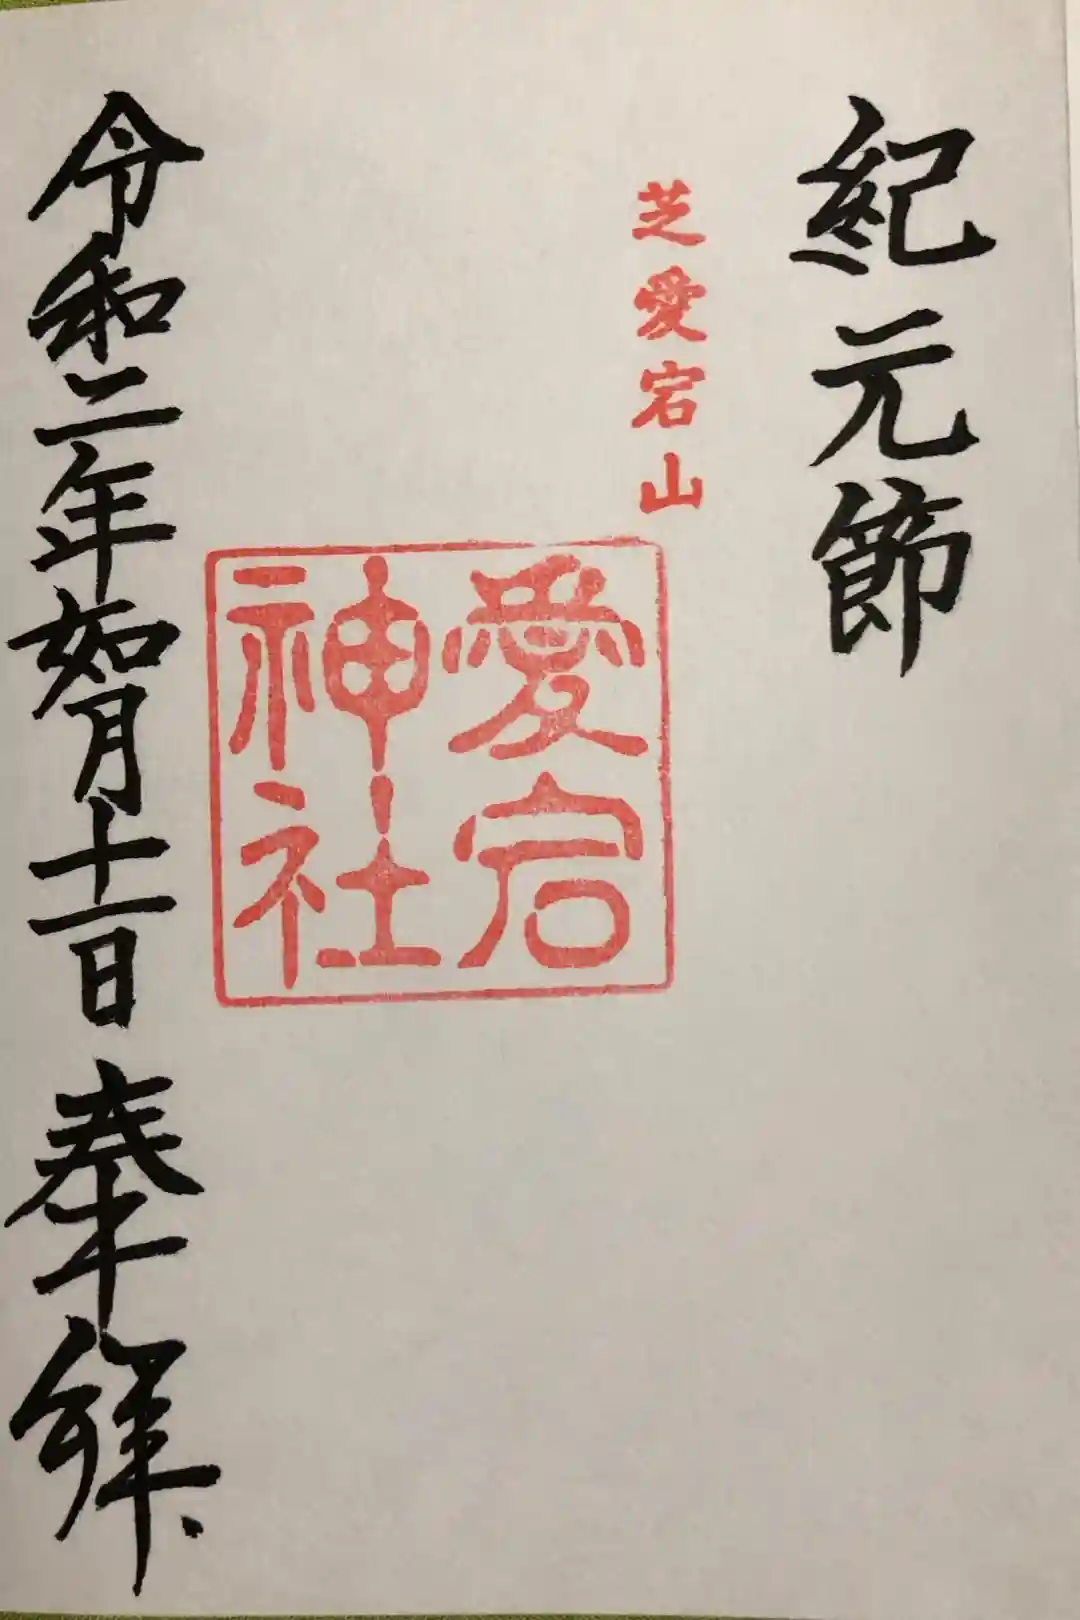 紀元節
芝愛宕山
愛宕
神社
令和二年如月十一日 奉拝